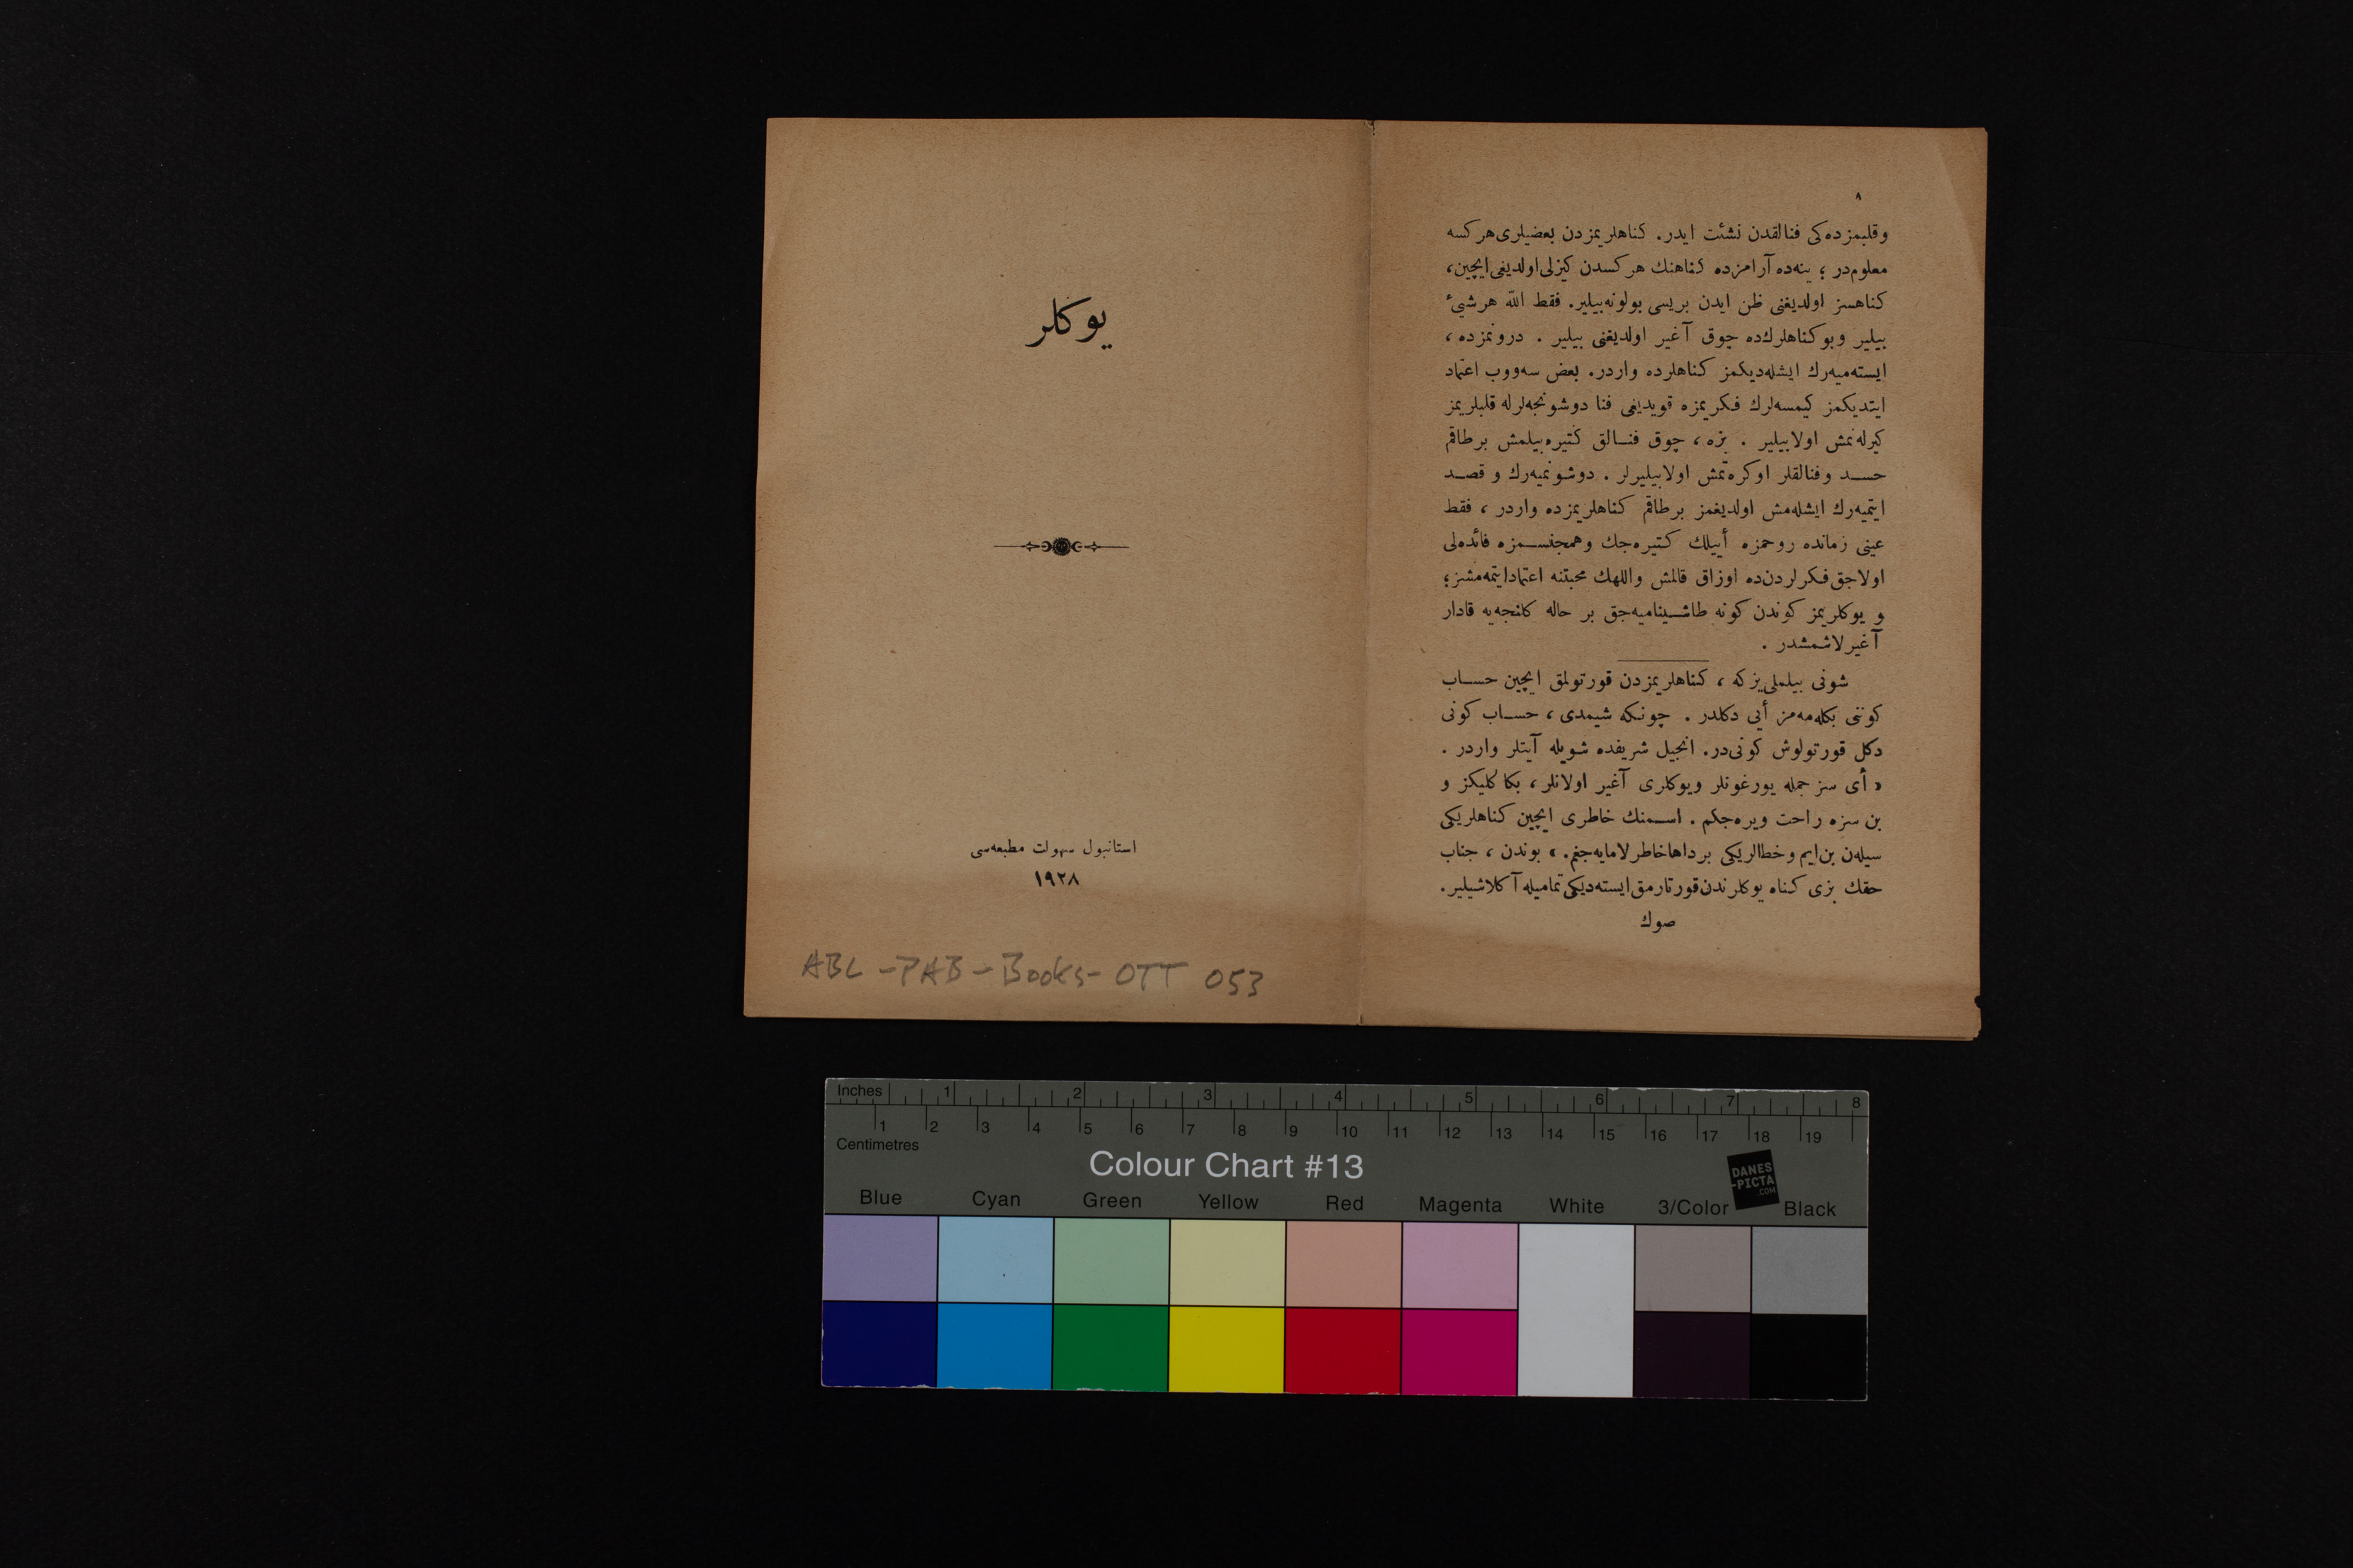 ٨
وقلبمزده‌كی فنالقدن نشئت ایدر. كناهلریمزدن بعضیلری هركسه
معلوم‌در ؛ ینه‌ده آرامزده كناهنك هركسدن كیزلی اولدیغی ایچین،
كناهسز اولدیغنی ظن ایدن بریسی بولونه‌بیلیر. فقط اللّه هرشیء
بیلیر وبوكناهلرك‌ده چوق آغیر اولدیغنی بیلیر . درونمزده ،
ایسته‌میه‌رك ایشله‌دیكمز كناهلرده واردر. بعض سه‌ووب اعتماد
ایتدیكمز كیمسه‌لرك فكریمزه قویدیغی فنا دوشونجه‌لرله قلبلریمز
كیرله‌نمش اولابیلیر . بزه ، چوق فنالق كتیره‌بیلمش برطاقم
حسد وفنالقلر اوكره‌تمش اولابیلیرلر . دوشونمیه‌رك و قصد
ایتمیه‌رك ایشله‌مش اولدیغمز برطاقم كناهلریمزده واردر ، فقط
عینی زمانده روحمزه أییلك كتیره‌جك وهمجنسمزه فائده‌لی
اولاجق فكرلردن‌ده اوزاق قالمش واللهك محبتنه اعتمادایتمه‌مشز؛
و یوكلریمز كوندن كونه طاشینامیه‌جق بر حاله كلنجه‌یه قادار
آغیرلاشمشدر .
شونی بیلملی‌یزكه ، كناهلریمزدن قورتولمق ایچین حساب
كوننی بكله‌مه‌مز أیی دكلدر . چونكه شیمدی ، حساب كونی
دكل قورتولوش كونی‌در. انجیل شریفده شویله آیتلر واردر .
« أی سز جمله یورغونلر ویوكلری آغیر اولانلر، بكا كلیكز و
بن سزه راحت ویره‌جكم . اسمنك خاطری ایچین كناهلریكی
سیله‌ن بن‌ایم وخطالریكی برداها خاطرلامایه‌جغم. » بوندن ، جناب
حقك بزی كناه یوكلرندن قورتارمق ایسته‌دیكی تمامیله آكلاشیلیر.
صوك
یوكلر
استانبول سهولت مطبعه‌سی
١٩٢٨
ABL -PAB-Books-OTT 053
Inches 1 2 3 4 5 6 7 8
1 2 3 4 5 6 7 8 9 10 11 12 13 14 15 16 17 18 19
Centimetres
Colour Chart #13
DANES
-PICTA
.COM
Blue Cyan Green Yellow Red Magenta White 3/Color Black